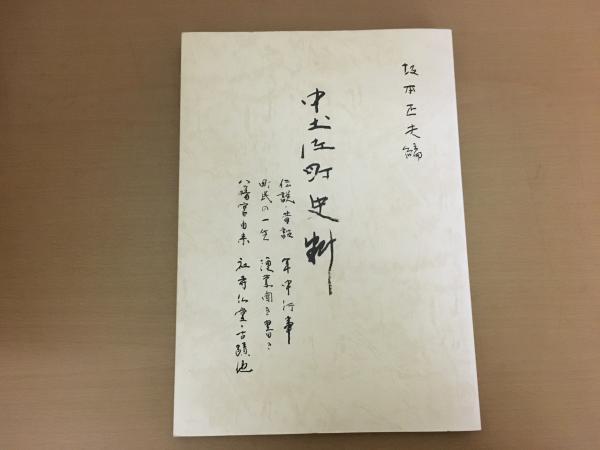 坂本正夫編
中土佐町史料
伝説・昔話 年中行事
町民の一生 漁業聞き書き
八幡宮由来 社寺仏堂・古蹟他